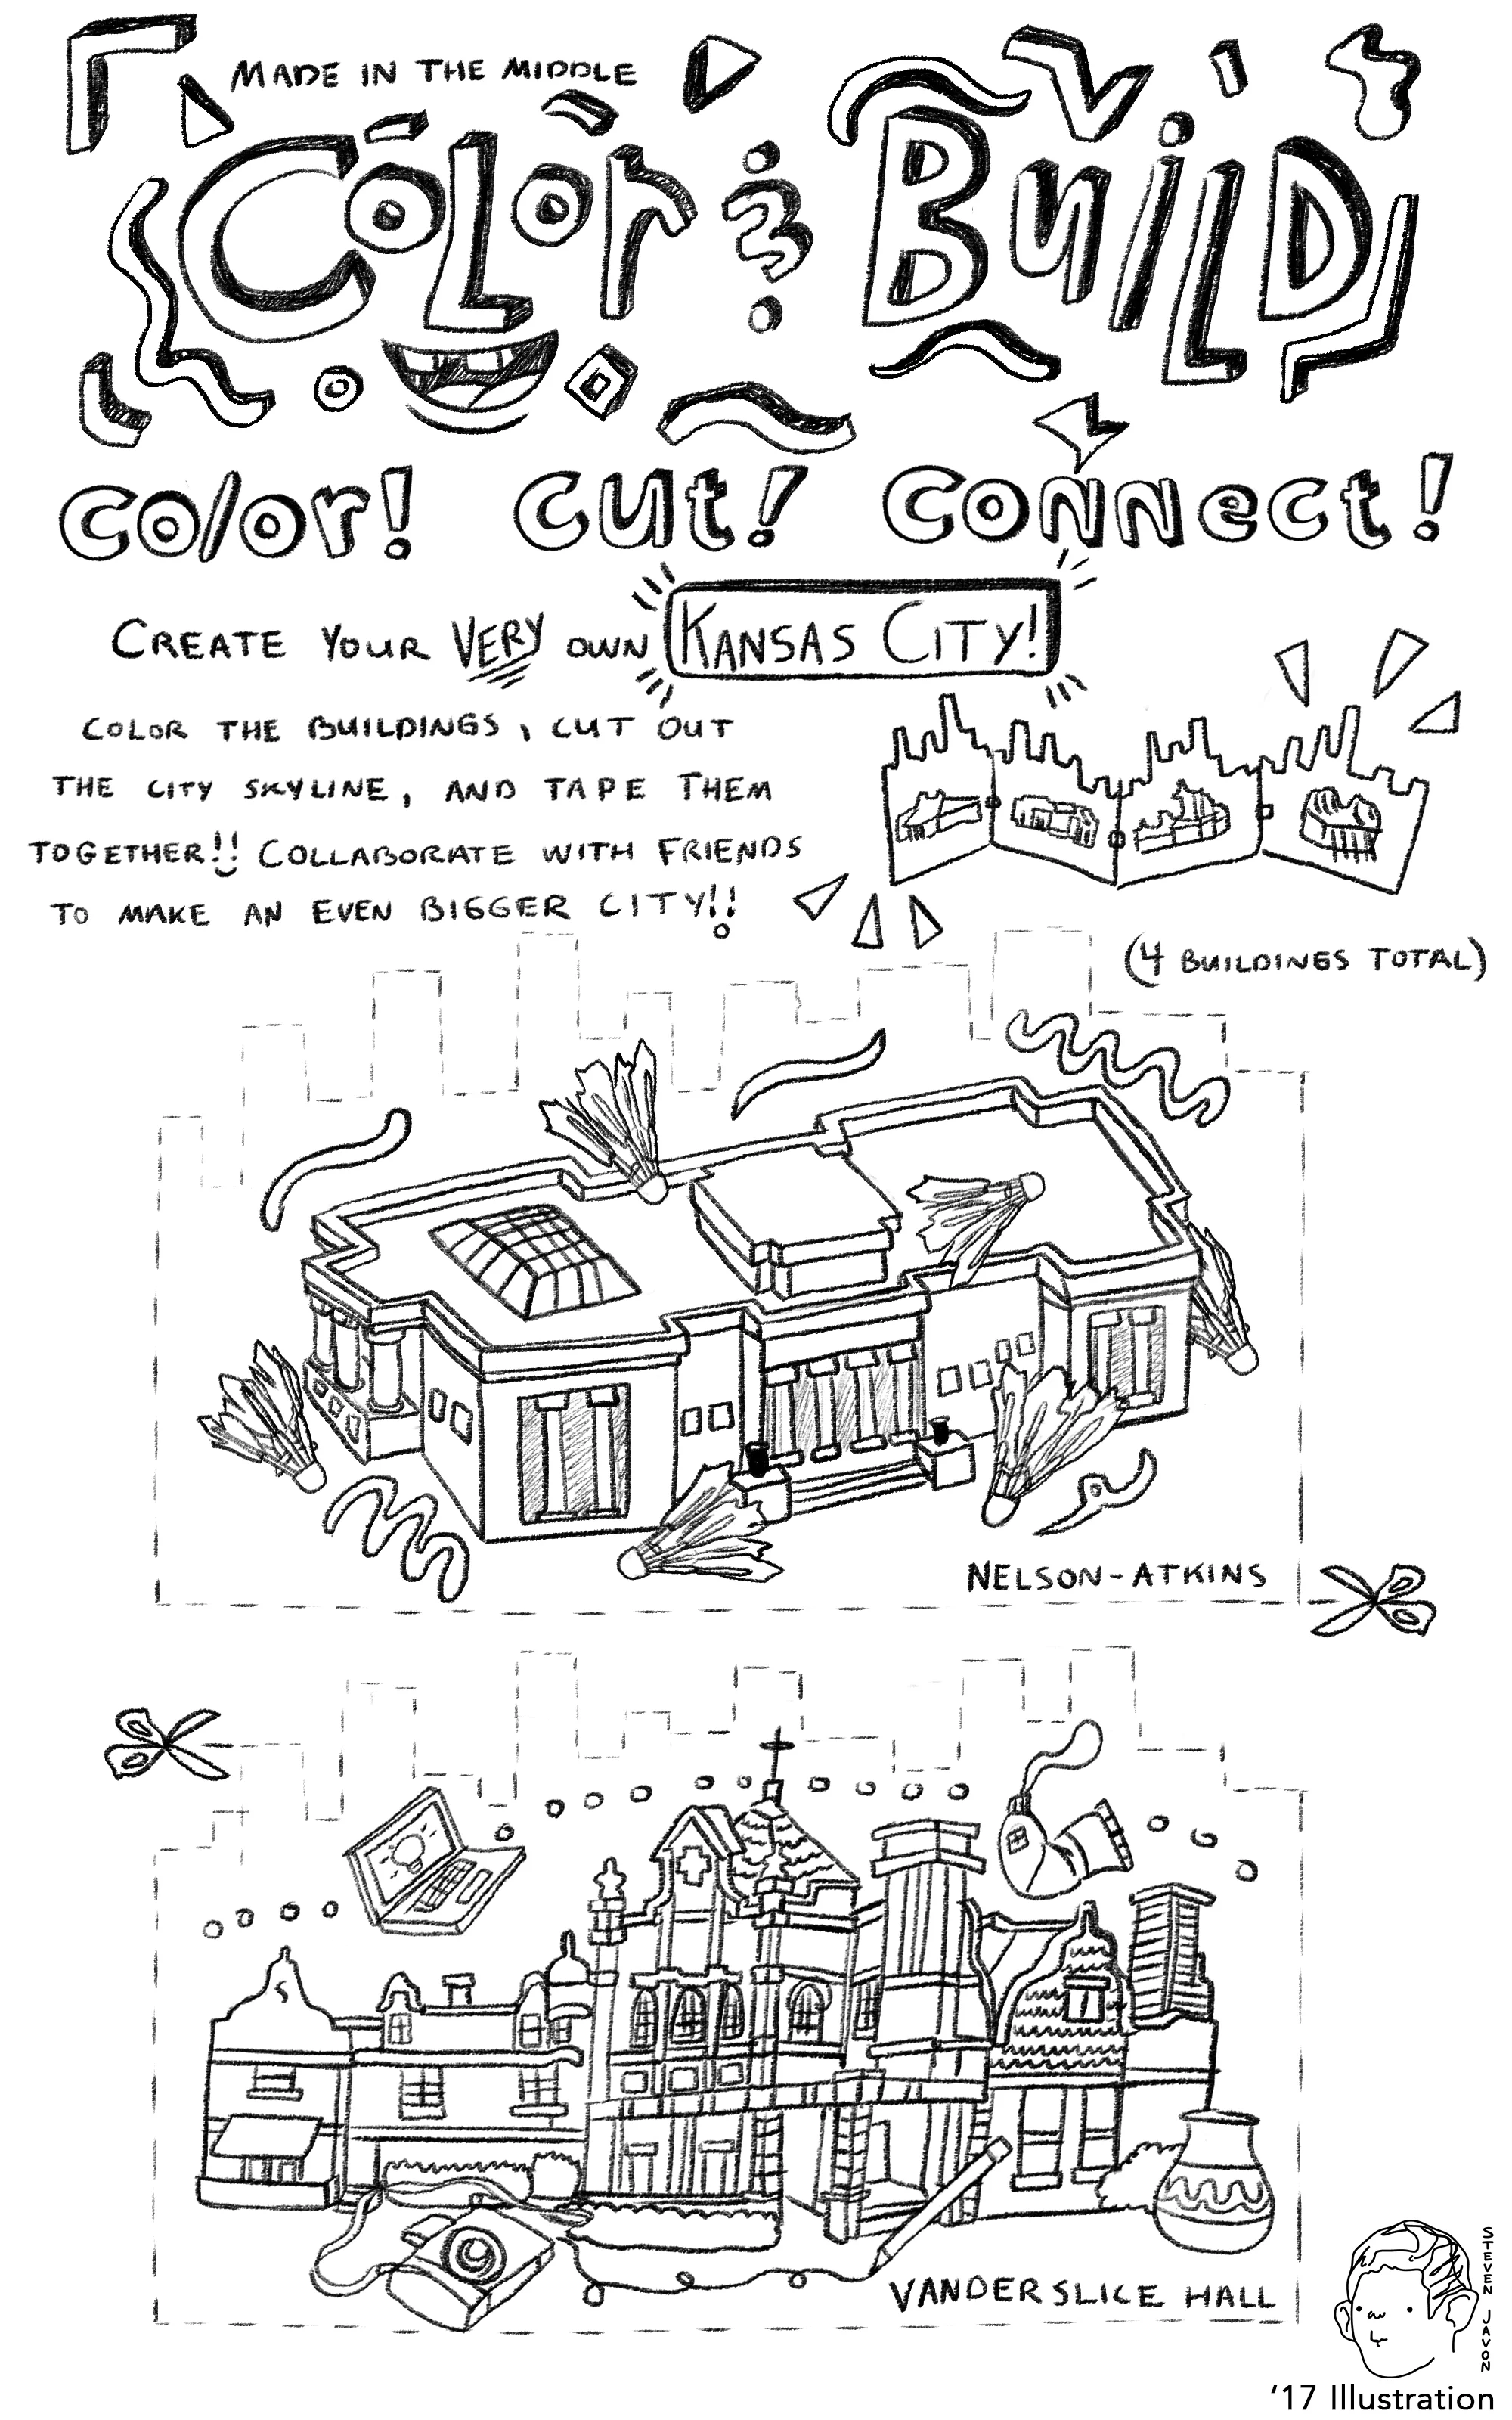 MADE IN THE MIDDLE
COLOR & BUILD
color! cut! connect!
CREATE YOUR VERY OWN KANSAS CITY!
COLOR THE BUILDINGS, CUT OUT
THE CITY SKYLINE, AND TAPE THEM
TOGETHER!! COLLABORATE WITH FRIENDS
TO MAKE AN EVEN BIGGER CITY!!
(4 BUILDINGS TOTAL)
NELSON-ATKINS
VANDERSLICE HALL
STEVEN JAVON
'17 Illustration